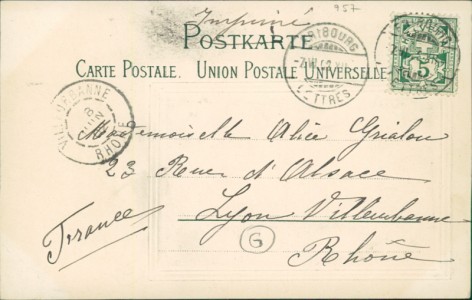 957
Imprimé
POSTKARTE
CARTE POSTALE. UNION POSTALE UNIVERSELLE
FRIBOURG
LETTRES
5
VILLEURBANNE
RHONE
Mademoiselle Alice Grialou
23 Rue d'Alsace
Lyon Villeurbanne
France
G
Rhône